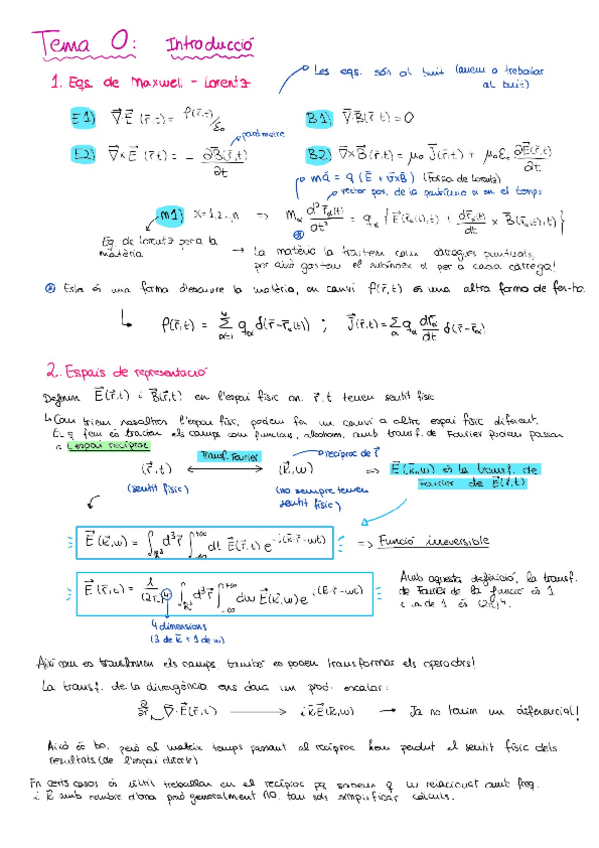 Tema 0: Introducció
1. Eqs. de Maxwell - Lorentz
Les eqs. són al buit (anem a treballar
al buit)
E1) ∇⃗·E⃗ (r⃗,t) = ρ(r⃗,t)/ε₀
B1) ∇⃗·B⃗(r⃗,t) = 0
paràmetre
E2) ∇⃗×E⃗ (r⃗,t) = - ∂B⃗(r⃗,t)/∂t
B2) ∇⃗×B⃗(r⃗,t) = μ₀ J⃗(r⃗,t) + μ₀ε₀ ∂E⃗(r⃗,t)/∂t
ma⃗ = q (E⃗ + v⃗×B⃗) (Força de Lorentz)
vector pos. de la partícula α en el temps
m1) α=1,2...,n => mα d²r⃗α(t)/dt² = qα { E⃗(r⃗α(t),t) + dr⃗α(t)/dt × B⃗(r⃗α(t),t) }
Eq. de Lorentz per a la
matèria
→ La matèria la tractem com càrregues puntuals,
per això gastem el subíndex α per a cada càrrega!
⊛ Esta és una forma d'escriure la matèria, en canvi ρ(r⃗,t) és una altra forma de fer-ho.
ρ(r⃗,t) = Σ qα δ(r⃗-r⃗α(t)) ; J⃗(r⃗,t) = Σα qα dr⃗α/dt δ(r⃗-r⃗α)
2. Espais de representació
Definim E⃗(r⃗,t) i B⃗(r⃗,t) en l'espai físic on r⃗,t tenen sentit físic
↳ Com triem nosaltres l'espai físic, podem fer un canvi a altre espai físic diferent.
El q fem és tractar els camps com funcions, aleshores, amb transf. de Fourier podem passar
a l'espai recíproc
(r⃗,t) Transf. Fourier (k⃗,w) recíproc de r⃗ => E⃗(k⃗,w) és la transf. de
Fourier de E⃗(r⃗,t)
(sentit físic) (no sempre tenen
sentit físic)
E⃗(k⃗,w) = ∫ℝ³ d³r⃗ ∫₋∞⁺∞ dt E⃗(r⃗,t) e^{-i(k⃗·r⃗-wt)} => Funció irreversible
E⃗(r⃗,t) = 1/(2π)⁴ ∫ℝ³ d³r⃗ ∫₋∞⁺∞ dw E⃗(k⃗,w) e^{i(k⃗·r⃗-wt)}
Amb aquesta definició, la transf.
de Fourier de la funció és 1
4 dimensions
(3 de k⃗ + 1 de w)
Així com es transformen els camps, també es poden transformar els operadors!
La transf. de la divergència ens dona un prod. escalar:
∇⃗·E⃗(r⃗,t) → ik⃗·E⃗(k⃗,w) → Ja no tenim un diferencial!
Això és bo, però al mateix temps passant al recíproc hem perdut el sentit físic dels
resultats (de l'espai directe)
En certs casos és útil treballar en el recíproc pq sabem q w relacionat amb freq.
i k⃗ amb nombre d'ona però generalment NO, tan sols simplificar càlculs.